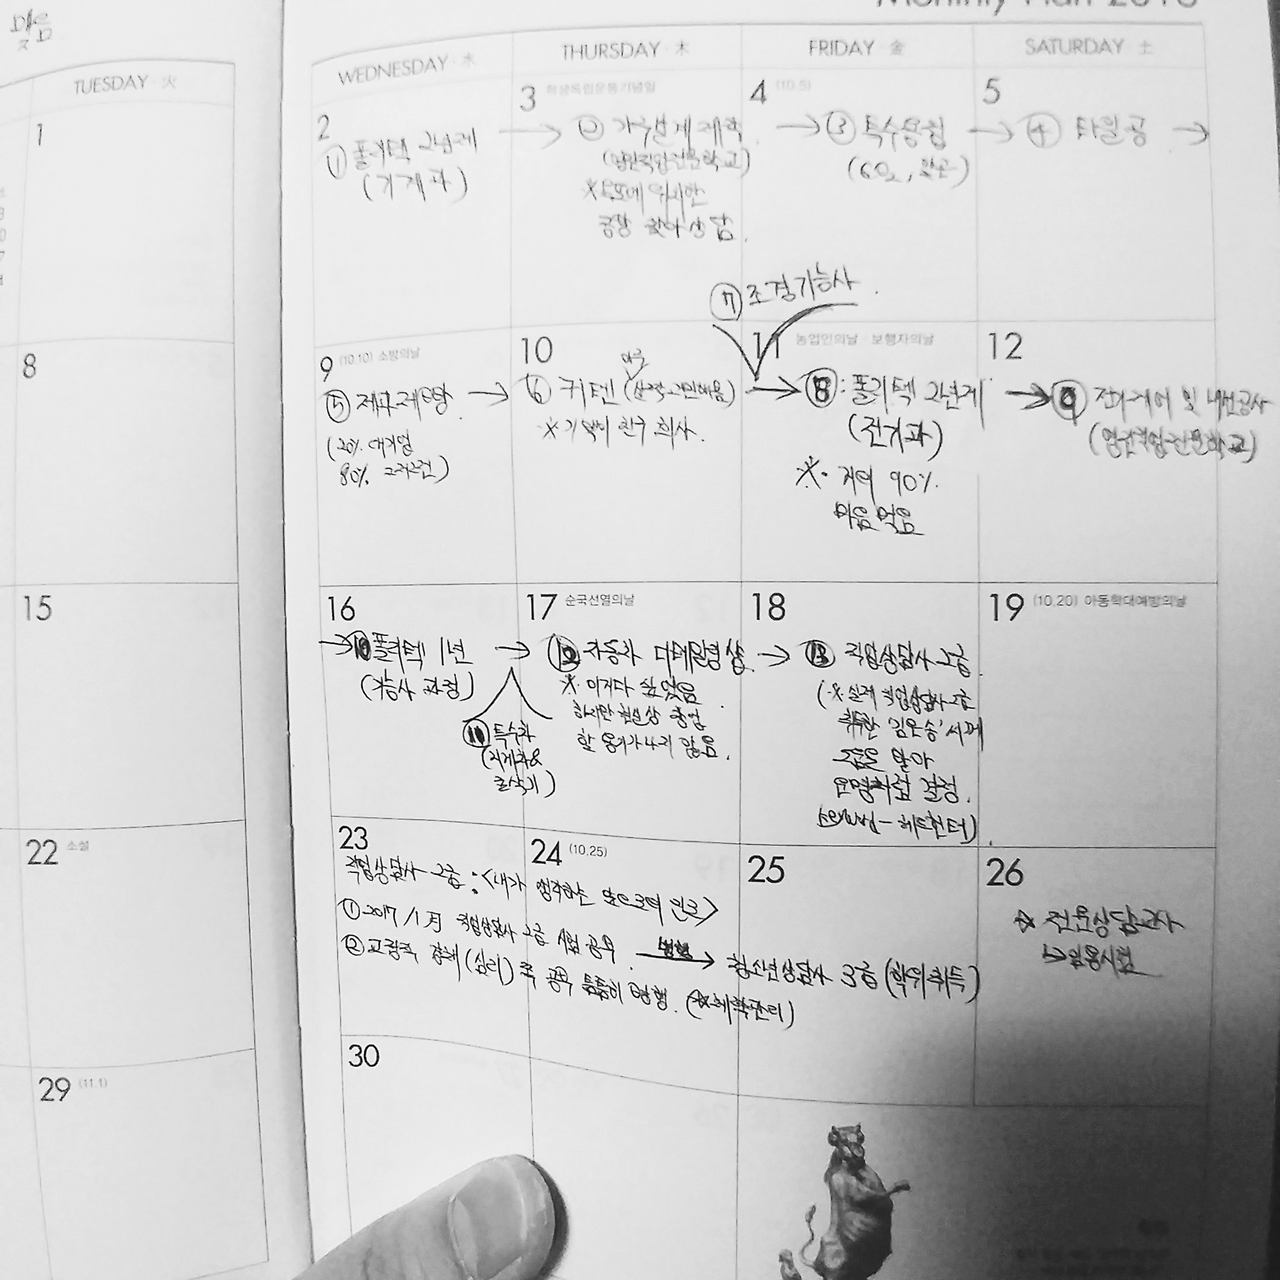 Monthly Plan 2016
TUESDAY 火
WEDNESDAY · 水
THURSDAY · 木
FRIDAY 金
SATURDAY 土
1
2
① 폴리텍 2년제
(기계과)
→
3 학생독립운동기념일
② 가구설계제작
(영진직업전문학교)
공장 찾아 상담.
4 (10.5)
→ ③ 특수용접
(CO2, 알곤)
5
→ ④ 타일공 →
⑦ 조경기능사.
8
9 (10.10) 소방의날
⑤ 제과제빵
(20% 대기업
80%
10
→ ⑥ 귀텐
친구 회사.
11 농업인의날 보행자의날
→ ⑧: 폴리텍 2년제
(전기과)
※· 거의 90%
마음 먹음
12
→ ⑨ 전기제어 및 내선공사
15
16
→ ⑩ 폴리텍 1년
(기능사 과정)
→
⑪ 특수차
(지게차&
굴삭기)
17 순국선열의날
⑫ 자동차 디테일링 샵
※· 이거다 싶었음
하지만 현실상 창업
할 용기가 나지 않음.
18
→ ⑬ 직업상담사 2급.
(※ 실제 직업상담사 2급
취득한 '김운송'서
알아
운명처럼 결정.
헤드헌터)
19 (10.20) 아동학대예방의날
22 소설
23
24 (10.25)
25
26
직업상담사 2급 : <내가 생각하는 앞으로의 진로>
① 2017/1月 직업상담사 2급 시험 공부
병행 → 청소년상담사 3급 (학위취득)
② 교정직 경채(심리) 쪽 공부 틈틈히 병행. (※체력관리)
☆ 전문상담교사
↳임용시험
29 (11.1)
30